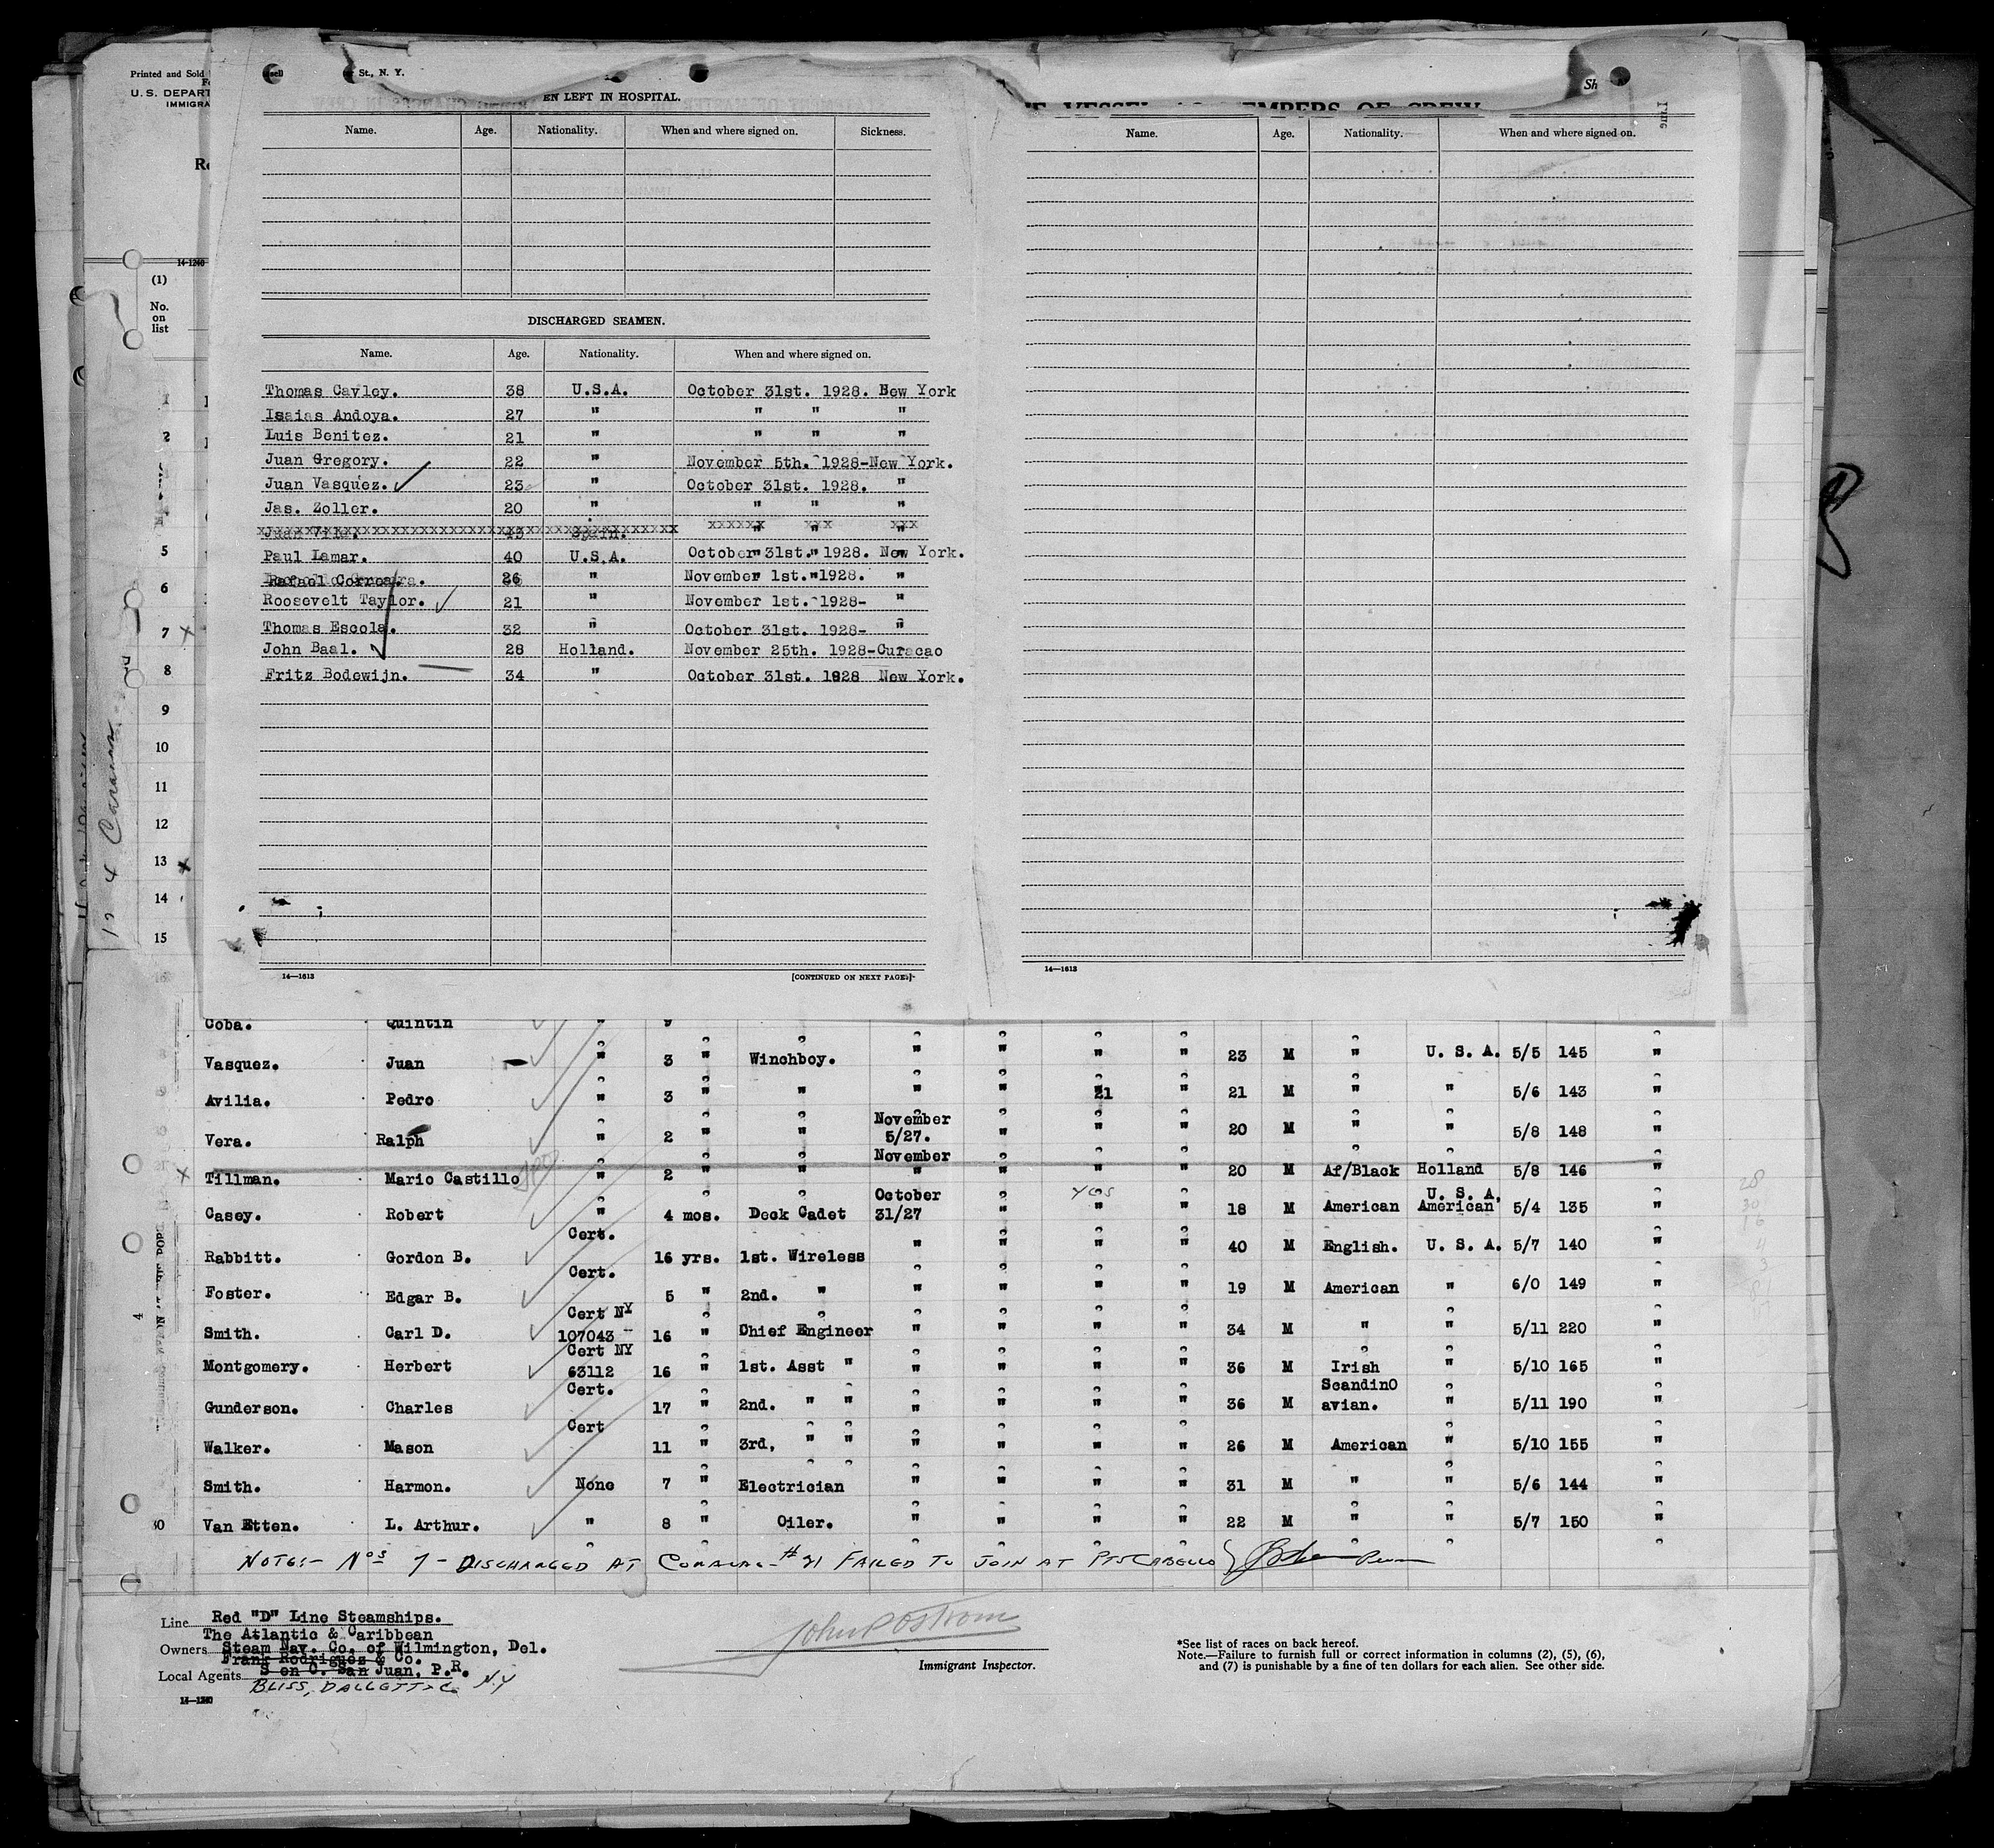 Printed and Sold
U. S. DEPART
IMMIGRA
St., N. Y.
EN LEFT IN HOSPITAL.
Name. Age. Nationality. When and where signed on. Sickness.
Name. Age. Nationality. When and where signed on.
14-1240
(1)
No.
on
list
DISCHARGED SEAMEN.
Name. Age. Nationality. When and where signed on.
Thomas Cavley. 38 U.S.A. October 31st. 1928. New York
Isaias Andoya. 27 " " " "
Luis Benitez. 21 " " " "
Juan Gregory. 22 " November 5th. 1928-New York.
Juan Vasquez. 23 " October 31st. 1928. "
Jas. Zoller. 20 " " " "
Spain.
Paul Lamar. 40 U.S.A. October 31st. 1928. New York.
Rafael Correa. 26 " November 1st. 1928. "
Roosevelt Taylor. 21 " November 1st. 1928- "
Thomas Escola. 32 " October 31st. 1928- "
John Baal. 28 Holland. November 25th. 1928-Curacao
Fritz Bodewijn. 34 " October 31st. 1928 New York.
1
2
5
6
7 x
8
9
10
11
12
13 x
14
15
14—1613 [CONTINUED ON NEXT PAGE.]
14—1613
Coba. Quintin " 9
Vasquez. Juan " 3 " Winchboy. " " " " 23 M " U. S. A. 5/5 145 "
Avilia. Pedro " 3 " " " " 21 " 21 M " " 5/6 143 "
Vera. Ralph " 2 " " November 5/27. " " " 20 M " " 5/8 148 "
November
x Tillman. Mario Castillo " 2 " " " " " " 20 M Af/Black Holland 5/8 146 "
yes
Casey. Robert " 4 mos. Deck Cadet October 31/27 " " " 18 M American U. S. A. American 5/4 135 "
Rabbitt. Gordon B. Cert. 16 yrs. 1st. Wireless " " " " 40 M English. U. S. A. 5/7 140 "
Foster. Edgar B. Cert. 5 " 2nd. " " " " " 19 M American " 6/0 149 "
Smith. Carl D. Cert NY 107043 16 " Chief Engineer " " " " 34 M " " 5/11 220 "
Montgomery. Herbert Cert NY 63112 16 " 1st. Asst " " " " " 36 M Irish " 5/10 165 "
Gunderson. Charles Cert. 17 " 2nd. " " " " " " 36 M ScandinO avian. " 5/11 190 "
Walker. Mason Cert 11 " 3rd, " " " " " " 26 M American " 5/10 155 "
Smith. Harmon. None 7 " Electrician " " " " 31 M " " 5/6 144 "
30 Van Etten. L. Arthur. " 8 " Oiler. " " " " 22 M " " 5/7 150 "
NOTE:- Nos 7 - DISCHARGED AT CURACAO - #21 FAILED TO JOIN AT PTO CABELLO
Line Red "D" Line Steamships.
The Atlantic & Caribbean
Owners Steam Nav. Co. of Wilmington, Del.
Frank Rodriguez & Co.
Local Agents S en C. San Juan, P.R.
BLISS, DALLETT & Co. N.Y
14—1240
John P Ostrom
Immigrant Inspector.
*See list of races on back hereof.
Note.—Failure to furnish full or correct information in columns (2), (5), (6),
and (7) is punishable by a fine of ten dollars for each alien. See other side.